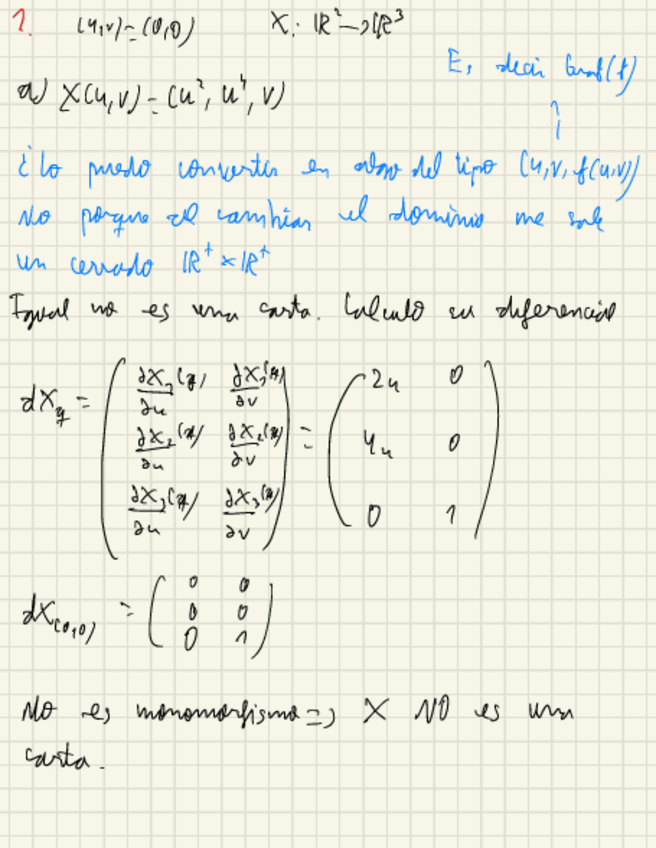 1. (u,v)=(0,0) X: ℝ²→ℝ³
Es decir Graf(f)
↑
a) X(u,v) = (u², u⁴, v)
¿Lo puedo convertir en algo del tipo (u,v, f(u,v))
No porque al cambiar el dominio me sale
un cerrado ℝ⁺×ℝ⁺
Igual no es una carta. Calculo su diferencial
dX_q = ( ∂X₁(q)/∂u ∂X₁(q)/∂v ; ∂X₂(q)/∂u ∂X₂(q)/∂v ; ∂X₃(q)/∂u ∂X₃(q)/∂v ) = ( 2u 0 ; 4u 0 ; 0 1 )
dX_(0,0) = ( 0 0 ; 0 0 ; 0 1 )
No es monomorfismo => X NO es una
carta.